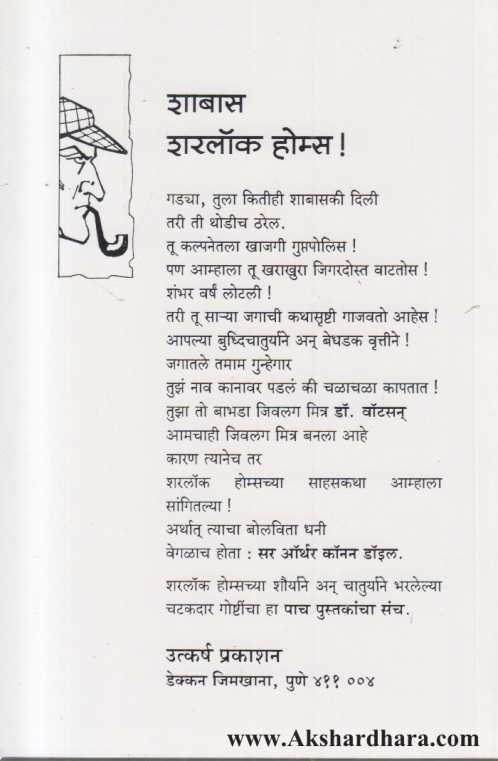 शाबास
शरलॉक होम्स !
गड्या, तुला कितीही शाबासकी दिली
तरी ती थोडीच ठरेल.
तू कल्पनेतला खाजगी गुप्तपोलिस !
पण आम्हाला तू खराखुरा जिगरदोस्त वाटतोस !
शंभर वर्षं लोटली !
तरी तू साऱ्या जगाची कथासृष्टी गाजवतो आहेस !
आपल्या बुध्दिचातुर्याने अन् बेधडक वृत्तीने !
जगातले तमाम गुन्हेगार
तुझं नाव कानावर पडलं की चळाचळा कापतात !
तुझा तो बाभडा जिवलग मित्र डॉ. वॉटसन्
आमचाही जिवलग मित्र बनला आहे
कारण त्यानेच तर
शरलॉक होम्सच्या साहसकथा आम्हाला
सांगितल्या !
अर्थात् त्याचा बोलविता धनी
वेगळाच होता : सर ऑर्थर कॉनन डॉइल.
शरलॉक होम्सच्या शौर्याने अन् चातुर्याने भरलेल्या
चटकदार गोष्टींचा हा पाच पुस्तकांचा संच.
उत्कर्ष प्रकाशन
डेक्कन जिमखाना, पुणे ४११ ००४
www.Akshardhara.com